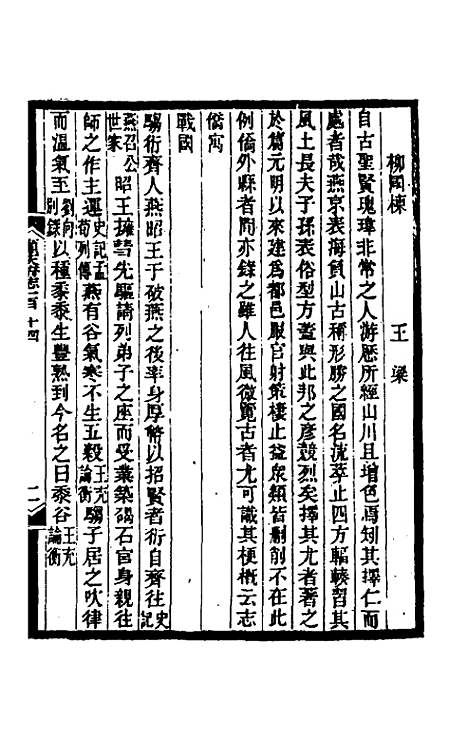 柳國棟　王梁
自古聖賢瑰瑋非常之人游歷所經山川且增色焉矧其擇仁而
處者哉燕京表海負山古稱形勝之國名流萃止四方輻輳習其
風土長夫子孫表俗型方蓋與此邦之彥競烈矣擇其尤者著之
於篇元明以來建為都邑服官射策棲止益衆類皆刪削不在此
例僑外縣者間亦錄之雖人往風微覽古者尤可識其梗概云志
僑寓
戰國
騶衍齊人燕昭王于破燕之後卑身厚幣以招賢者衍自齊往史記
燕召公世家昭王擁彗先驅請列弟子之座而受業築碣石宮身親往
師之作主運史記孟荀列傳燕有谷氣寒不生五穀王充論衡騶子居之吹律
而溫氣至劉向別錄以種黍黍生豐熟到今名之曰黍谷王充論衡
順天府志一百十四